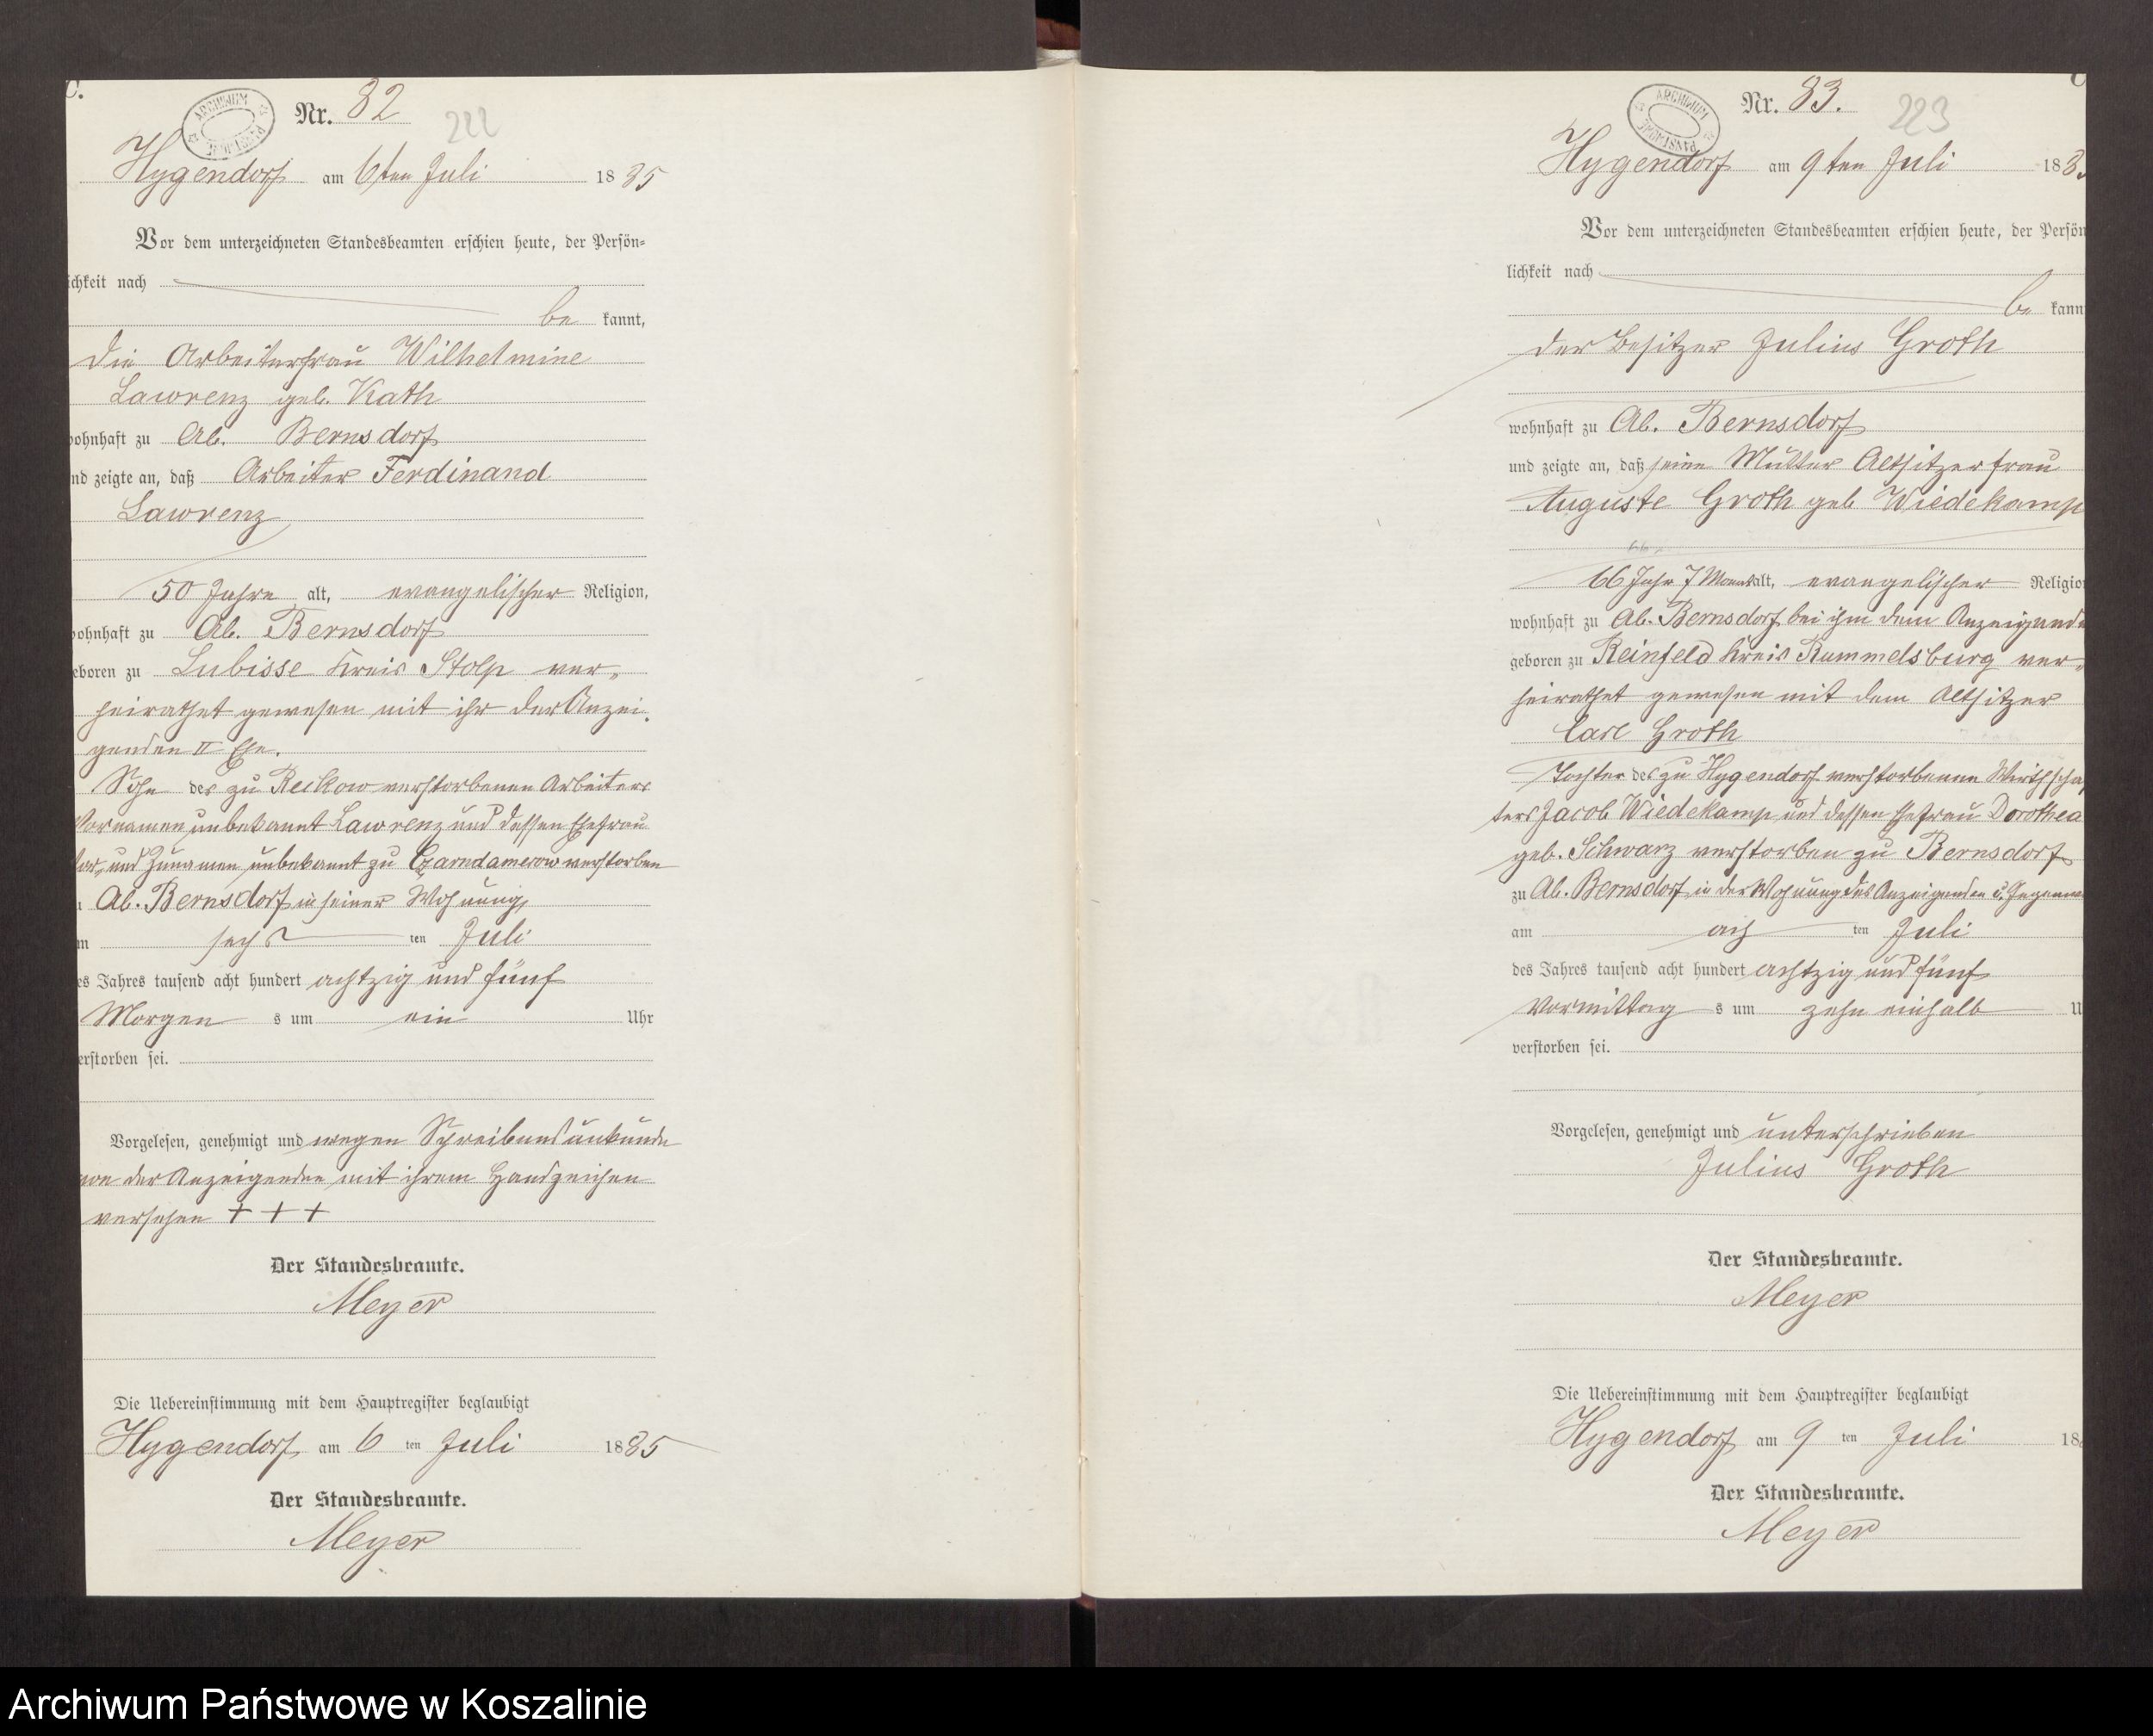 C.
ARCHIWUM PAŃSTWOWE
Nr. 82
222
Hygendorf am 6ten Juli 1885
Vor dem unterzeichneten Standesbeamten erschien heute, der Persön-
ichkeit nach
be kannt,
die Arbeiterfrau Wilhelmine
Lawrenz geb. Kath
wohnhaft zu Ab. Bernsdorf
nd zeigte an, daß Arbeiter Ferdinand
Lawrenz
50 Jahre alt, evangelischer Religion,
wohnhaft zu Ab. Bernsdorf
eboren zu Lubisse Kreis Stolp ver-
heirathet gewesen mit ihr der Anzei-
genden II Ehe.
Sohn des zu Reckow verstorbenen Arbeiters
Vornamen unbekannt Lawrenz und dessen Ehefrau
Vor- und Zunamen unbekannt zu Czarndamerow verstorben
Ab. Bernsdorf in seiner Wohnung,
m sechs ten Juli
es Jahres tausend acht hundert achtzig und fünf
Morgen s um ein Uhr
erstorben sei.
Vorgelesen, genehmigt und wegen Schreibensunkunde
von der Anzeigenden mit ihrem Handzeichen
versehen + + +
Der Standesbeamte.
Meyer
Die Uebereinstimmung mit dem Hauptregister beglaubigt
Hygendorf am 6 ten Juli 1885
Der Standesbeamte.
Meyer
C
ARCHIWUM PAŃSTWOWE
Nr. 83.
223
Hygendorf am 9ten Juli 188
Vor dem unterzeichneten Standesbeamten erschien heute, der Persön
lichkeit nach
be kann
der Besitzer Julius Groth
wohnhaft zu Ab. Bernsdorf
und zeigte an, daß seine Mutter Altsitzerfrau
Auguste Groth geb Wiedekamp
66 Jahr 7 Monat alt, evangelischer Religio
wohnhaft zu Ab. Bernsdorf bei ihm dem Anzeigende
geboren zu Reinfeld Kreis Rummelsburg ver-
heirathet gewesen mit dem Altsitzer
Carl Groth
Tochter des zu Hygendorf verstorbenen Wirthschaf
ters Jacob Wiedekamp und dessen Ehefrau Dorothea
geb. Schwarz verstorben zu Bernsdorf
zu Ab. Bernsdorf in der Wohnung des Anzeigenden u. Gegenwa
am ach ten Juli
des Jahres tausend acht hundert achtzig und fünf
Vormittag s um zehn einhalb U
verstorben sei.
Vorgelesen, genehmigt und unterschrieben
Julius Groth
Der Standesbeamte.
Meyer
Die Uebereinstimmung mit dem Hauptregister beglaubigt
Hygendorf am 9 ten Juli 18
Der Standesbeamte.
Meyer
Archiwum Państwowe w Koszalinie